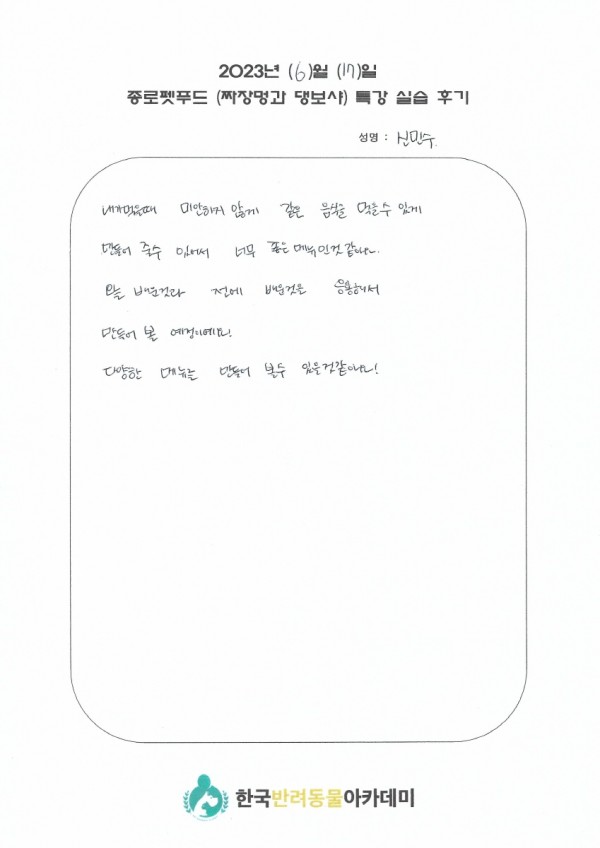 2023년 (6)월 (17)일
종로펫푸드 (짜장멍과 댕보샤) 특강 실습 후기
성명 : 신민수
내가먹을때 미안하지 않게 같은 음식을 먹을수 있게
만들어 줄수 있어서 너무 좋은메뉴인것 같아요.
오늘 배운것과 전에 배운것을 응용해서
만들어 볼 예정이에요!
다양한 메뉴를 만들어 볼수 있을것같아요!
한국반려동물아카데미